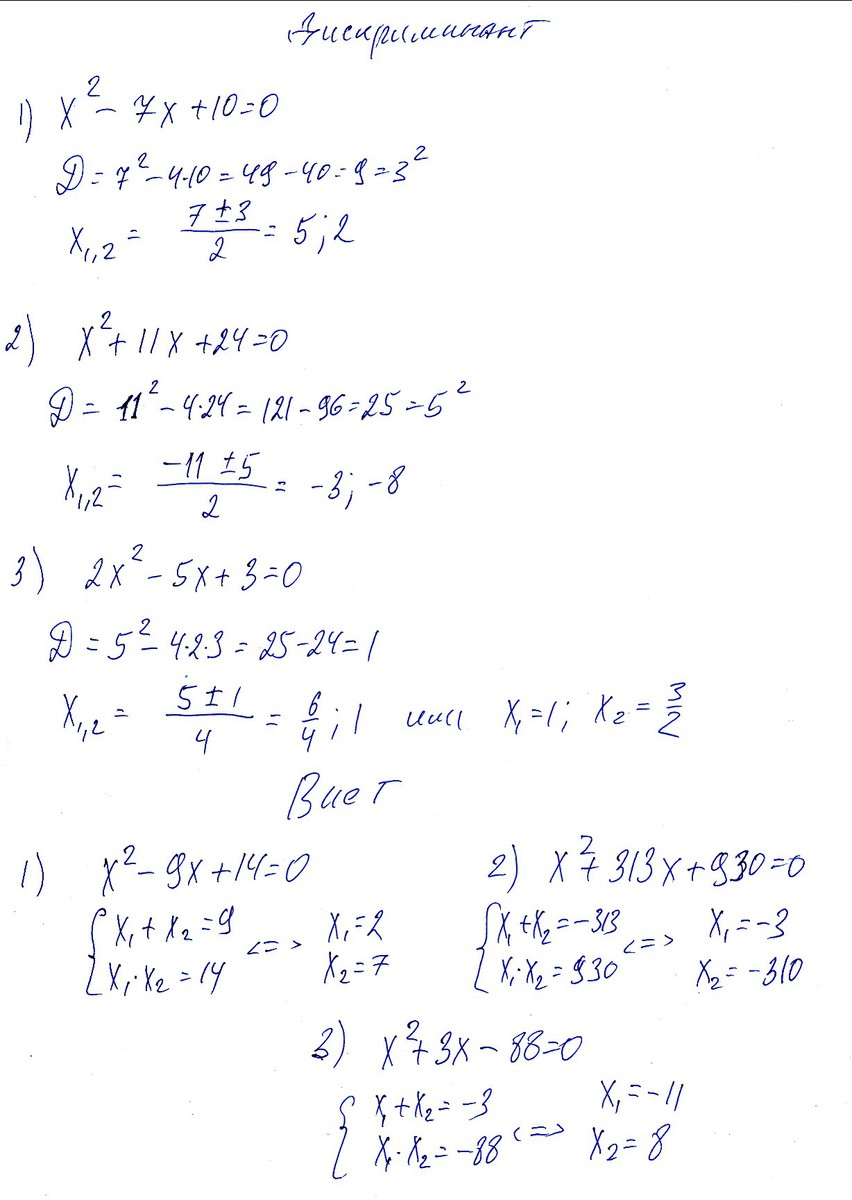 Дискриминант
1) x² - 7x + 10 = 0
Д = 7² - 4·10 = 49 - 40 = 9 = 3²
x₁,₂ = (7 ± 3)/2 = 5; 2
2) x² + 11x + 24 = 0
Д = 11² - 4·24 = 121 - 96 = 25 = 5²
x₁,₂ = (-11 ± 5)/2 = -3; -8
3) 2x² - 5x + 3 = 0
Д = 5² - 4·2·3 = 25 - 24 = 1
x₁,₂ = (5 ± 1)/4 = 6/4; 1 или x₁ = 1; x₂ = 3/2
Виет
1) x² - 9x + 14 = 0
{ x₁ + x₂ = 9
x₁·x₂ = 14 <=> x₁ = 2
x₂ = 7
2) x² + 313x + 930 = 0
{ x₁ + x₂ = -313
x₁·x₂ = 930 <=> x₁ = -3
x₂ = -310
3) x² + 3x - 88 = 0
{ x₁ + x₂ = -3
x₁·x₂ = -88 <=> x₁ = -11
x₂ = 8